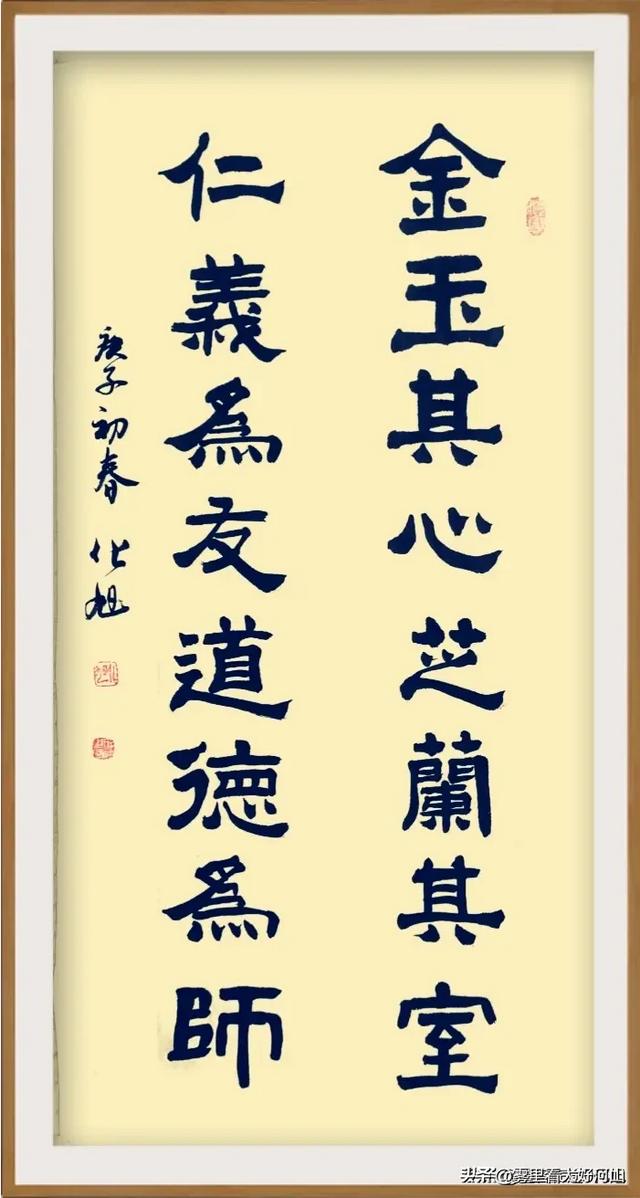 金玉其心芝蘭其室
仁義為友道德為師
庚子初春 化旭
头条@雾里看大好河旭